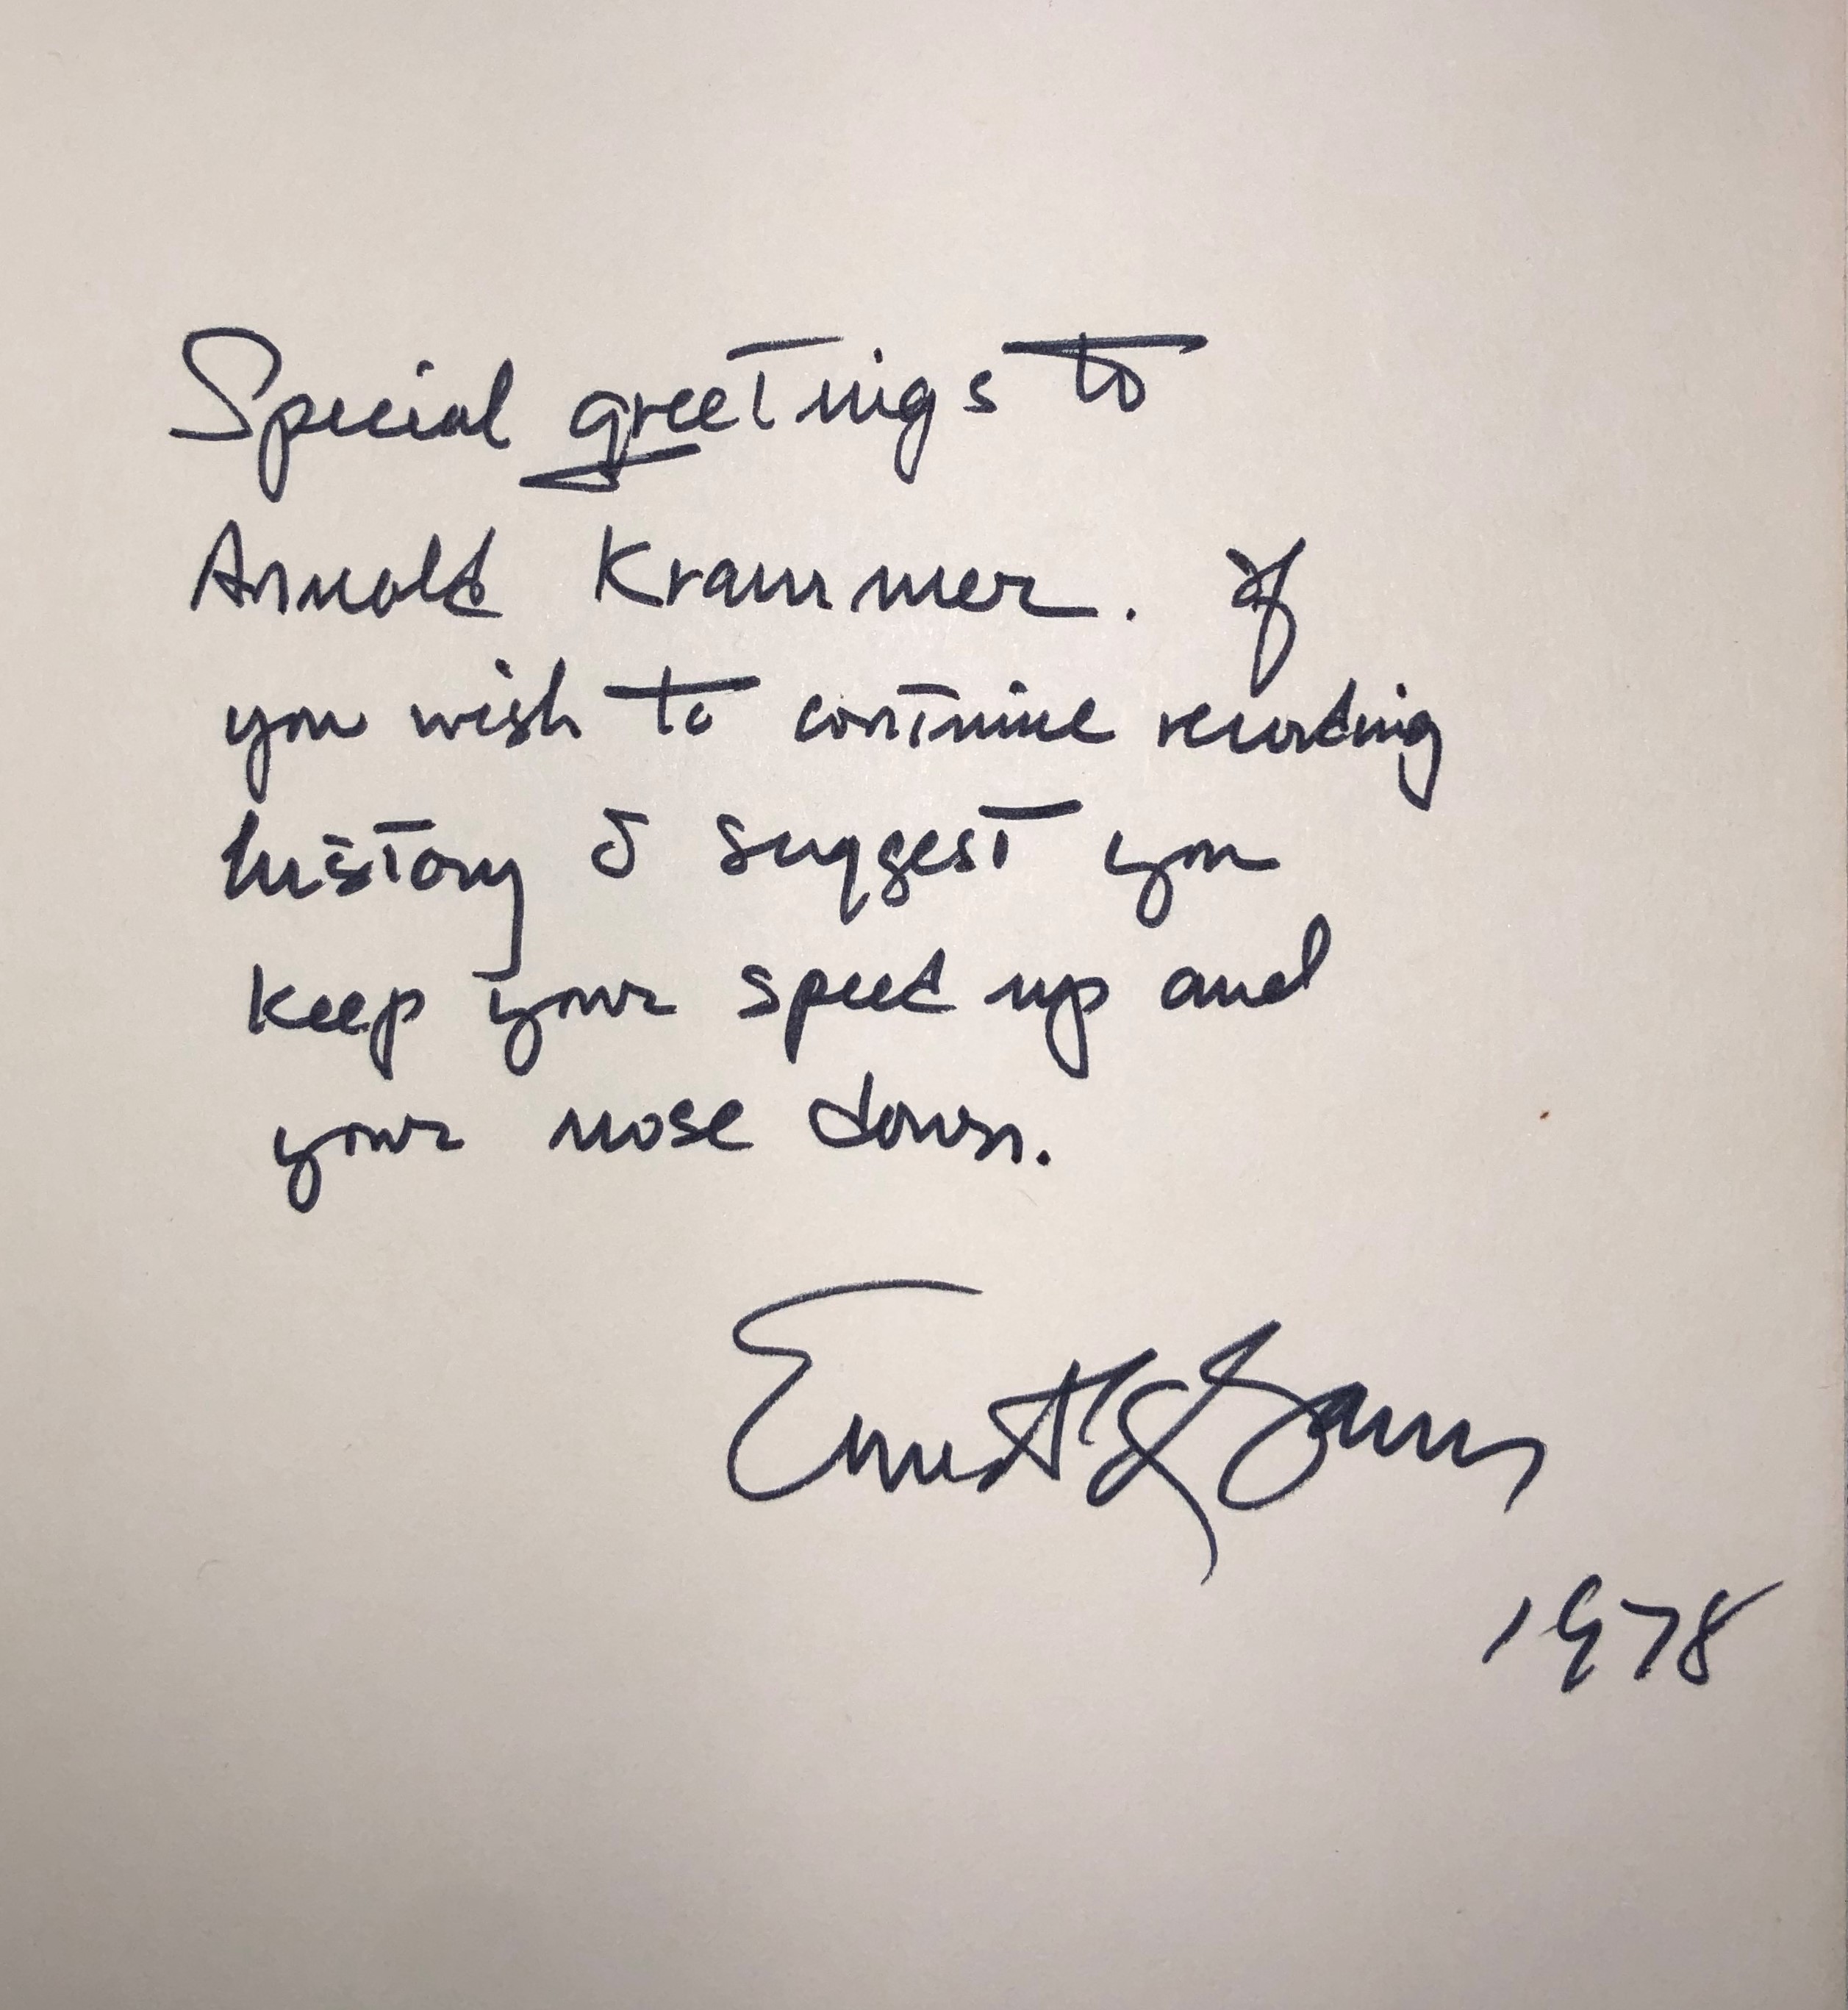 Special greetings to
Arnold Krammer. If
you wish to continue recording
history I suggest you
keep your speed up and
your nose down.
Ernest K Gann
1978